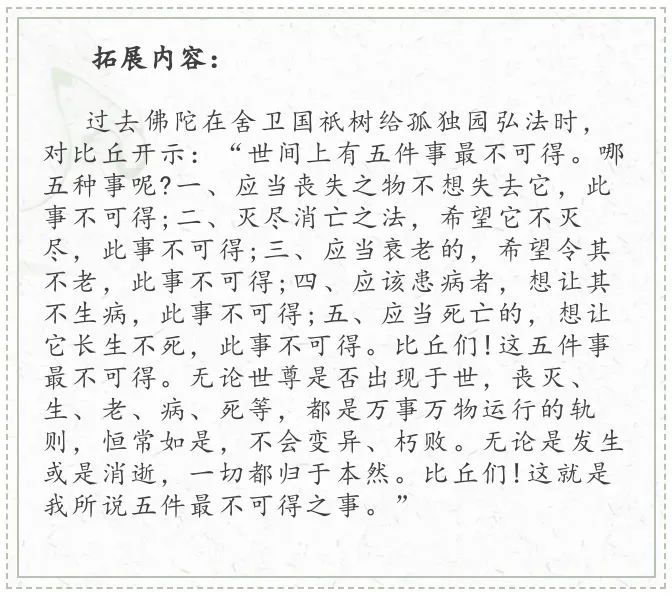 拓展内容：
过去佛陀在舍卫国祇树给孤独园弘法时，
对比丘开示：“世间上有五件事最不可得。哪
五种事呢?一、应当丧失之物不想失去它，此
事不可得;二、灭尽消亡之法，希望它不灭
尽，此事不可得;三、应当衰老的，希望令其
不老，此事不可得;四、应该患病者，想让其
不生病，此事不可得;五、应当死亡的，想让
它长生不死，此事不可得。比丘们!这五件事
最不可得。无论世尊是否出现于世，丧灭、
生、老、病、死等，都是万事万物运行的轨
则，恒常如是，不会变异、朽败。无论是发生
或是消逝，一切都归于本然。比丘们!这就是
我所说五件最不可得之事。”